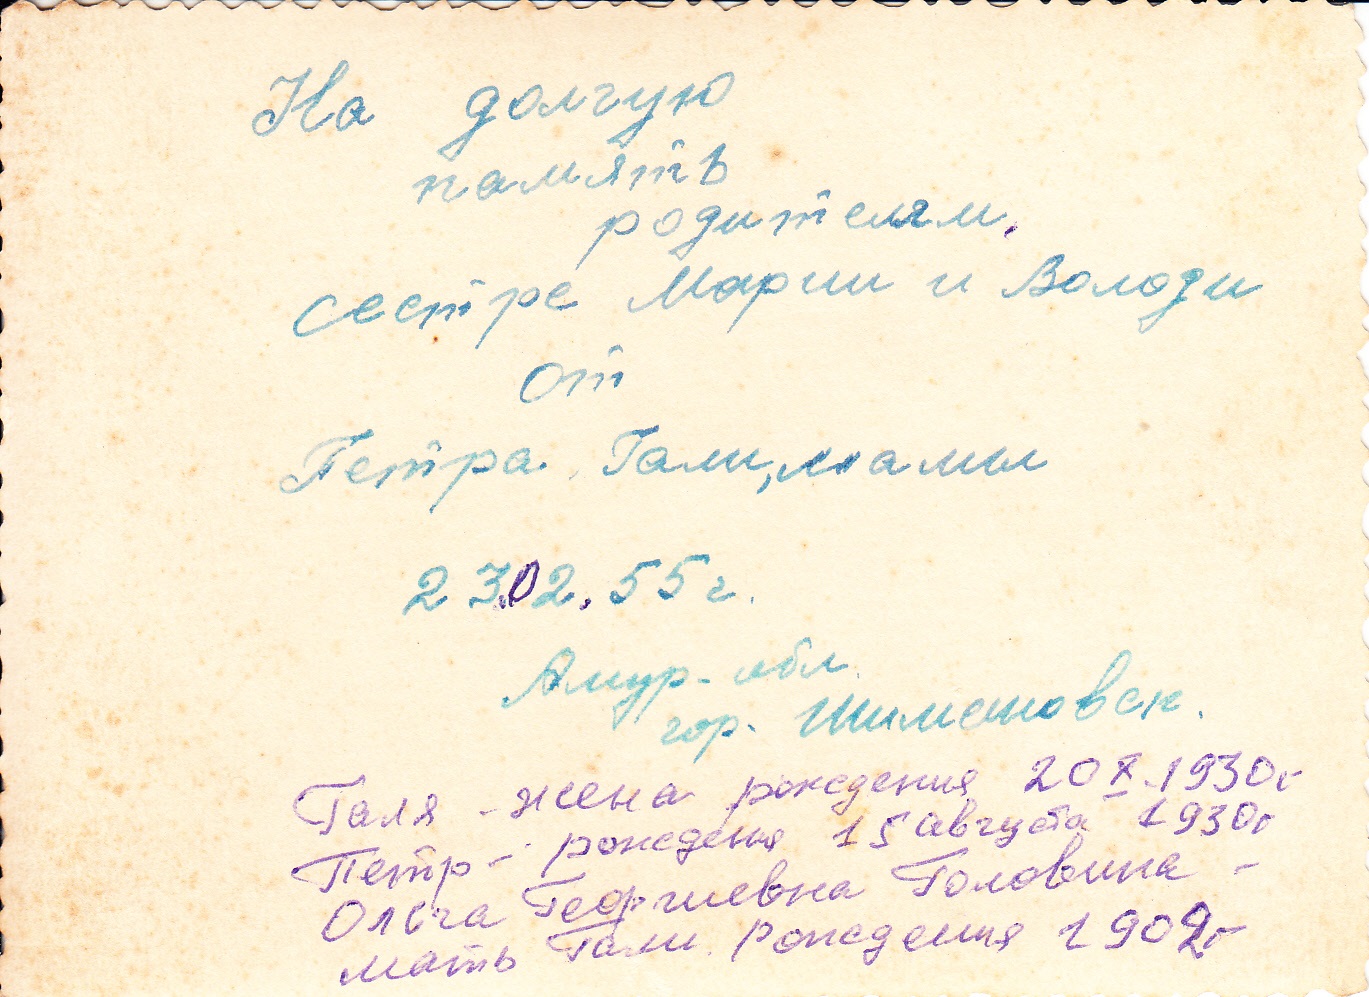 На долгую
память
родителям,
сестре Марии и Володи
от
Петра. Гали, мамы
23.02.55г.
Амур. обл.
гор. Шимановск.
Галя - жена рождения 20 X 1930г
Петр - рожденья 15 августа 1930г
Ольга Георгиевна Головина -
мать Гали. рождения 1902г